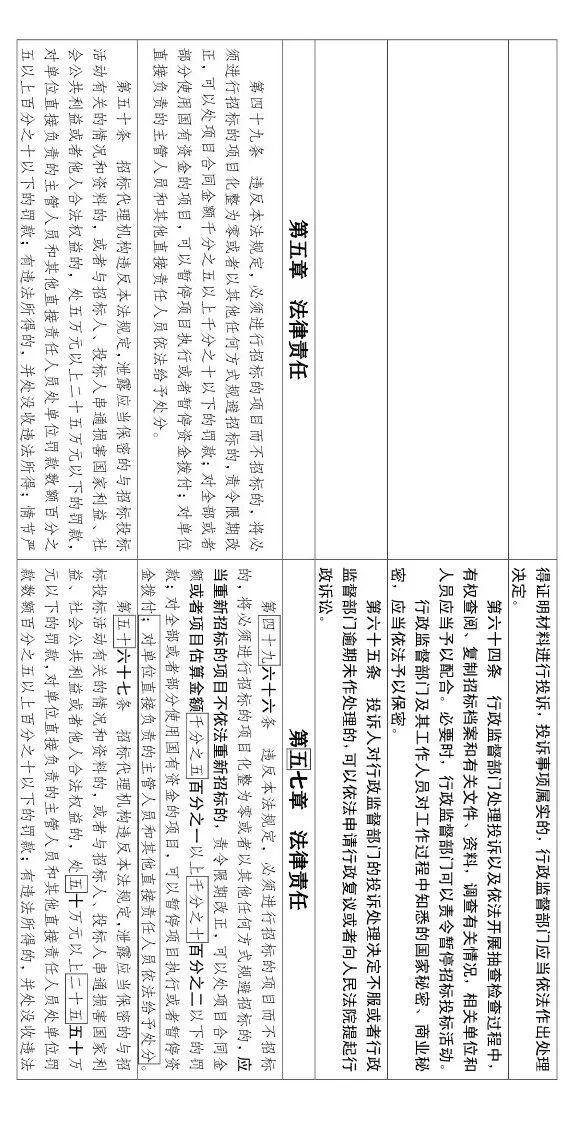 得证明材料进行投诉，投诉事项属实的，行政监督部门应当依法作出处理
决定。
第六十四条 行政监督部门处理投诉以及依法开展抽查检查过程中，
有权查阅、复制招标档案和有关文件、资料，调查有关情况，相关单位和
人员应当予以配合。必要时，行政监督部门可以责令暂停招标投标活动。
行政监督部门及其工作人员对工作过程中知悉的国家秘密、商业秘
密，应当依法予以保密。
第六十五条 投诉人对行政监督部门的投诉处理决定不服或者行政
监督部门逾期未作处理的，可以依法申请行政复议或者向人民法院提起行
政诉讼。
第五章 法律责任
第五七章 法律责任
第四十九条 违反本法规定，必须进行招标的项目而不招标的，将必
须进行招标的项目化整为零或者以其他任何方式规避招标的，责令限期改
正，可以处项目合同金额千分之五以上千分之十以下的罚款；对全部或者
部分使用国有资金的项目，可以暂停项目执行或者暂停资金拨付；对单位
直接负责的主管人员和其他直接责任人员依法给予处分。
第四十九六十六条 违反本法规定，必须进行招标的项目而不招标
的，将必须进行招标的项目化整为零或者以其他任何方式规避招标的，应
当重新招标的项目不依法重新招标的，责令限期改正，可以处项目合同金
额或者项目估算金额千分之五百分之一以上千分之十百分之二以下的罚
款；对全部或者部分使用国有资金的项目，可以暂停项目执行或者暂停资
金拨付；对单位直接负责的主管人员和其他直接责任人员依法给予处分。
第五十条 招标代理机构违反本法规定，泄露应当保密的与招标投标
活动有关的情况和资料的，或者与招标人、投标人串通损害国家利益、社
会公共利益或者他人合法权益的，处五万元以上二十五万元以下的罚款，
对单位直接负责的主管人员和其他直接责任人员处单位罚款数额百分之
五以上百分之十以下的罚款；有违法所得的，并处没收违法所得；情节严
第五十六十七条 招标代理机构违反本法规定，泄露应当保密的与招
标投标活动有关的情况和资料的，或者与招标人、投标人串通损害国家利
益、社会公共利益或者他人合法权益的，处五十万元以上二十五五十万
元以下的罚款，对单位直接负责的主管人员和其他直接责任人员处单位罚
款数额百分之五以上百分之十以下的罚款；有违法所得的，并处没收违法